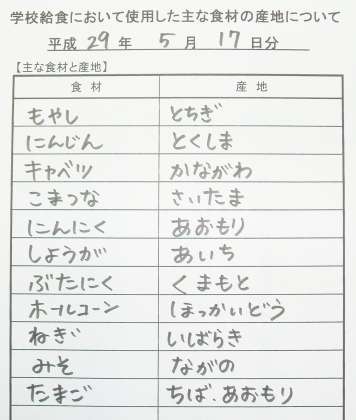 学校給食において使用した主な食材の産地について
平成 29 年 5 月 17 日分
【主な食材と産地】
食材 産地
もやし とちぎ
にんじん とくしま
キャベツ かながわ
こまつな さいたま
にんにく あおもり
しょうが あいち
ぶたにく くまもと
ホールコーン ほっかいどう
ねぎ いばらき
みそ ながの
たまご ちば、あおもり